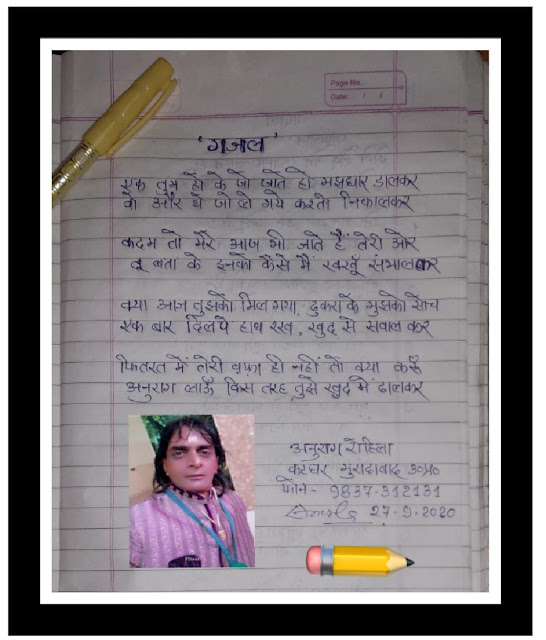 Page No.
Date: / /
'गज़ल'
एक तुम हो के जो जाते हो मझधार डालकर
वो और थे जो ले गये कश्ती निकालकर
कदम तो मेरे आज भी जाते हैं तेरी ओर
तू बता के इनको कैसे मैं रक्खूँ संभालकर
क्या आज तुझको मिल गया, ठुकरा के मुझको सोच
एक बार दिल पे हाथ रख, खुद से सवाल कर
फितरत में तेरी वफ़ा ही नहीं तो क्या करूँ
अनुराग लाऊँ किस तरह तुझे खुद में ढालकर
अनुराग रोहिला
मुरादाबाद उ०प्र०
फोन - 9837-312131
27-9-2020